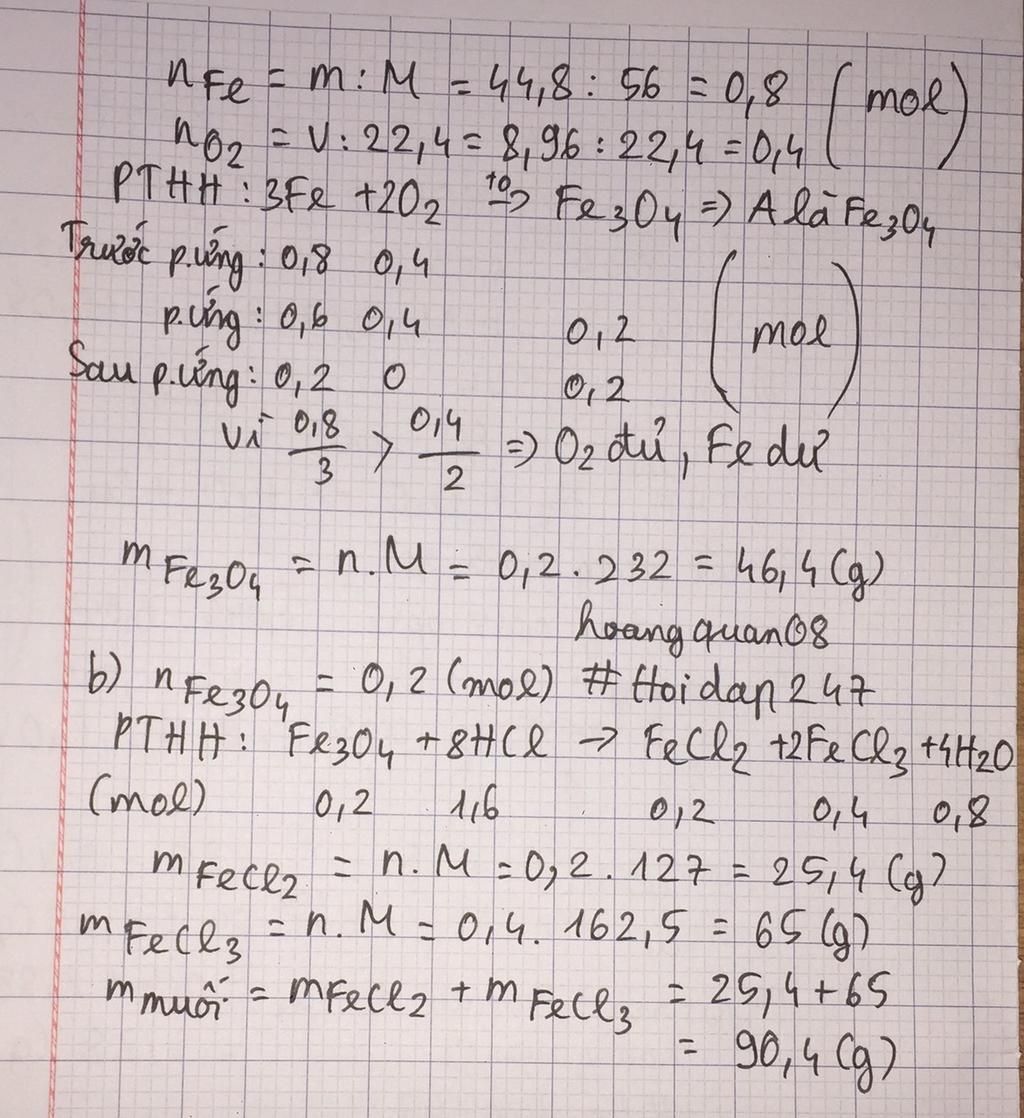 nFe = m : M = 44,8 : 56 = 0,8 (mol)
nO2 = V : 22,4 = 8,96 : 22,4 = 0,4 (mol)
PTHH : 3Fe + 2O2 t0→ Fe3O4 => A là Fe3O4
Trước p.ứng : 0,8 0,4
p.ứng : 0,6 0,4 0,2 (mol)
Sau p.ứng : 0,2 0 0,2
Vì 0,8/3 > 0,4/2 => O2 đủ, Fe dư
mFe3O4 = n.M = 0,2 . 232 = 46,4 (g)
hoangquan08
b) nFe3O4 = 0,2 (mol) # Hoidap247
PTHH : Fe3O4 + 8HCl → FeCl2 + 2FeCl3 + 4H2O
(mol) 0,2 1,6 0,2 0,4 0,8
mFeCl2 = n.M = 0,2 . 127 = 25,4 (g)
mFeCl3 = n.M = 0,4 . 162,5 = 65 (g)
mmuối = mFeCl2 + mFeCl3 = 25,4 + 65
= 90,4 (g)